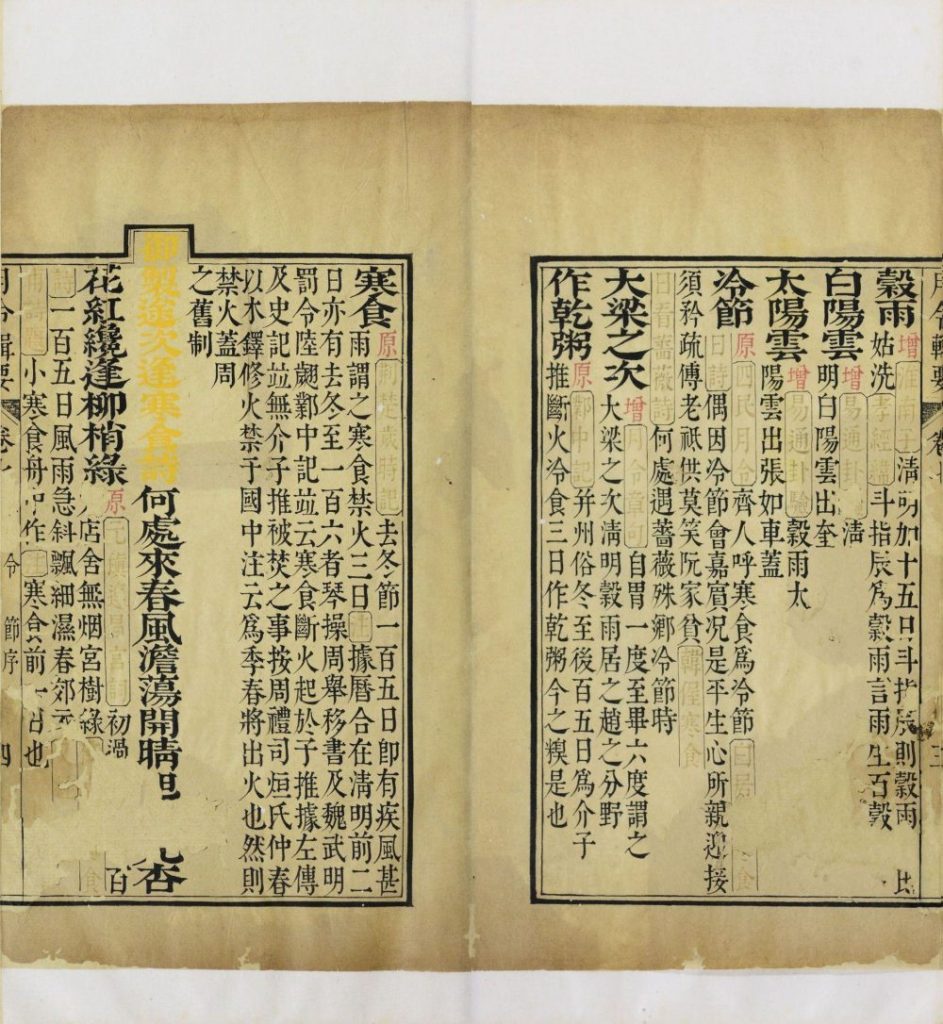 月令輯要 卷 三
穀雨 增 淮南子 清明加十五日斗指辰則穀雨 比
姑洗 孝經緯 斗指辰爲穀雨言雨生百穀
白陽雲 增 易通卦驗 清
明白陽雲出奎
太陽雲 增 易通卦驗 穀雨太
陽雲出張如車蓋
冷節 原 四民月令 齊人呼寒食爲冷節 白居 食
日詩 偶因冷節會嘉賓况是平生心所親迎接
須矜疏傅老祇供莫笑阮家貧 韓偓寒食
日看薔薇詩 何處遇薔薇殊鄉冷節時
大梁之次 增 月令章句 自胃一度至畢六度謂之
大梁之次清明穀雨居之趙之分野
作乾粥 原 鄴中記 并州俗冬至後百五日爲介子
推斷火冷食三日作乾粥今之糗是也
寒食 原 荊楚歲時記 去冬節一百五日卽有疾風甚
雨謂之寒食禁火三日 注 據曆合在淸明前二
日亦有去冬至一百六者琴操周舉移書及魏武明
罰令陸翽鄴中記竝云寒食斷火起於子推據左傳
及史記竝無介子推被焚之事按周禮司烜氏仲春
以木鐸修火禁于國中注云爲季春將出火也然則
禁火蓋周
之舊制
御製途次逢寒食詩 何處來春風澹蕩開晴 杏
花紅纔逢柳梢綠 原 元稹連昌宮詞 初過 百
店舍無烟宮樹綠 食
詩 一百五日風雨急斜飄細濕春郊
小寒食舟中作 注 寒食前一日也
月令輯要 卷七 令 節序 四